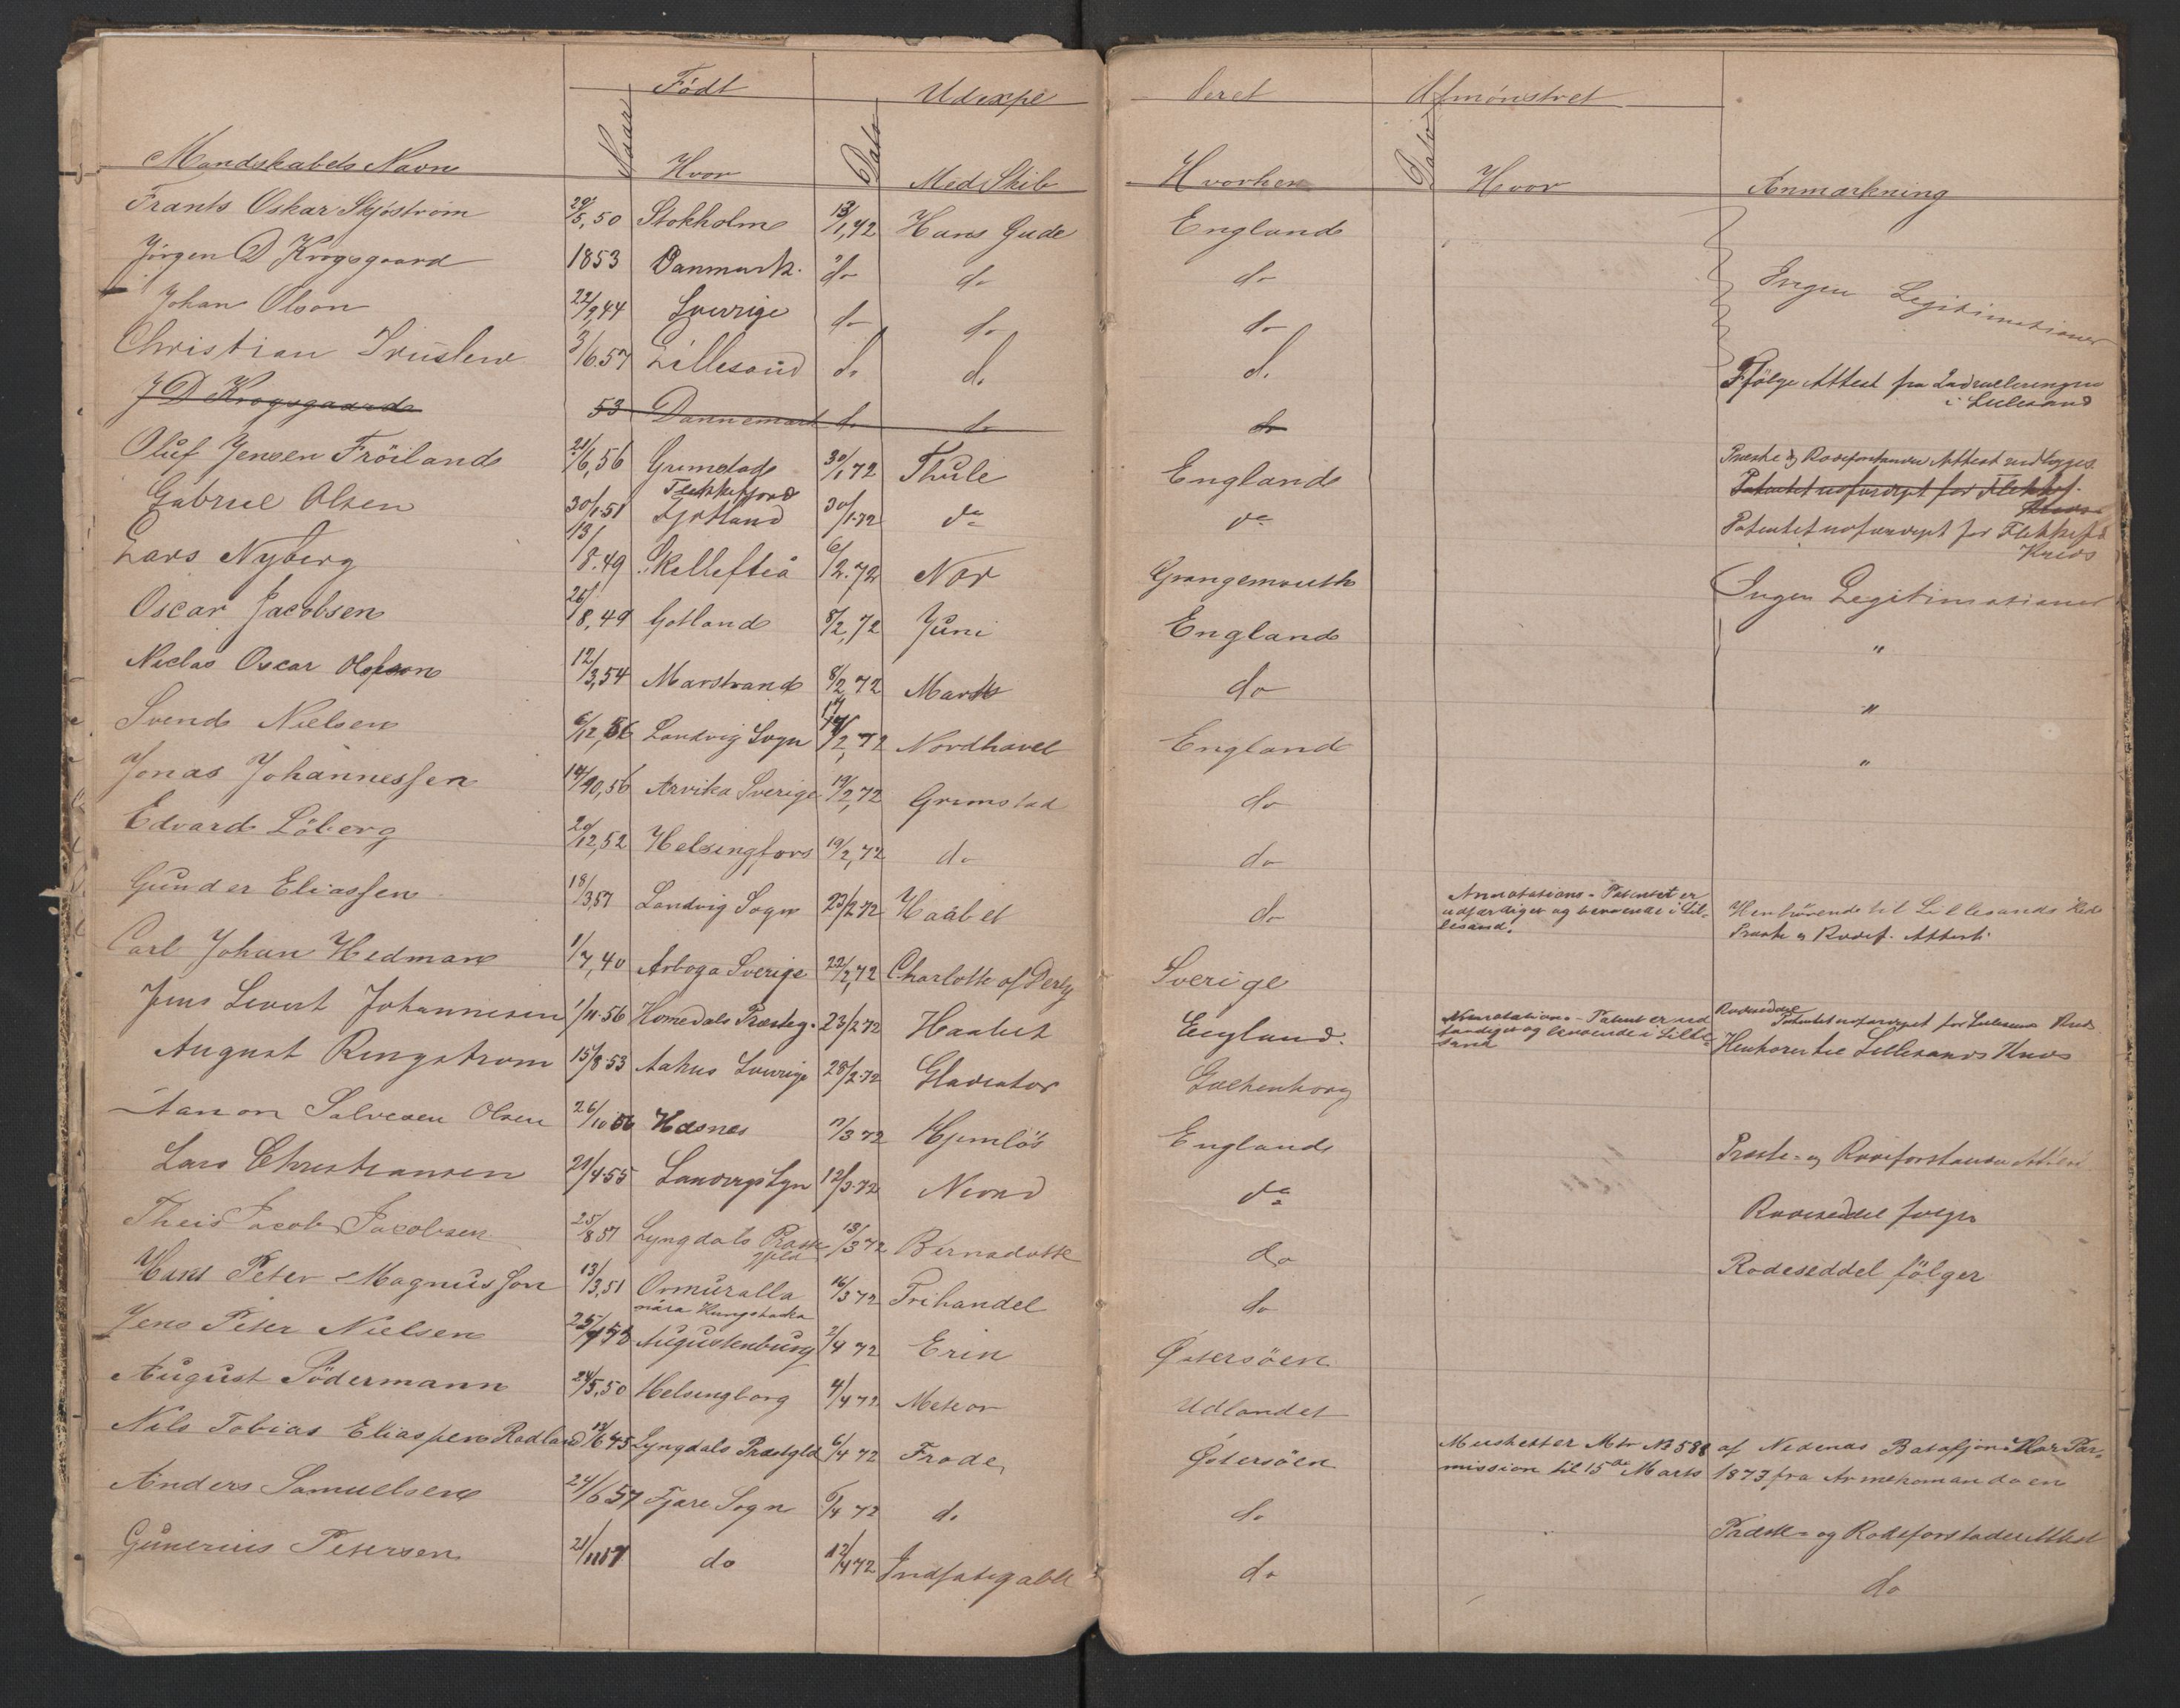 Født Udexpe deret Afmønstret
Mandskabets Navn Naar Hvor Dato Med Skib Hvorhen Dato Hvor Anmærkning
Frants Oskar Skjøstrøm 20/5,50 Stokholm 13/1,72 Hans Gude England
Jørgen D Krogsgaard 1853 Danmark. do do do Ingen Legitimationer
Johan Olson 22/9,44 Sverige do do do
Christian Truslew 3/6.57 Lillesand do do do Ffølge Attest fra Indrulleringen
i Lillesand
J D Krogsgaard 53 Dannemark do do do
Oluf Jensen Fröiland 21/6,56 Grimstad 30/1 72 Thule England Præste og Rodeforstander Attest
Flekkefjord Patentet udfærdiget for Flekkef.
Kreds
Gabriel Olsen 30/1.51 30/1.72 do do Patentet udfærdiget for Flekkefd
Kreds
Lars Nyberg 13/8.49 Skellefteå 6/2.72 Nor Grangemouth Ingen Legitimationer
Oscar Jacobsen 26/8,49 Gotland 8/2,72 Juni England "
Niclas Oscar Olofsson 12/3,54 Marstrand 8/2,72 Marts do "
Svend Nielsen 6/12,56 Landvig Sogn 17/2,72 Nordhavet England "
Jonas Johannessen 14/10,56 Arvika Sverige 19/2,72 Grimstad do
Edvard Löberg 20/12,52 Helsingfors 19/2,72 do do
Gunder Eliassen 18/3,57 Landvig Sogn 23/2 72 Haabet do Annotations-Patentet er
udfærdiget og beroende i Lil-
lesand. Henhörende til Lillesands Kreds
Præste og Rodef. Attest.
Carl Johan Hedman 1/7,40 Arboga Sverige 22/2,72 Charlotte af Derby Sverige
Jens Sivert Johannesen 1/11.56 Homedals Præsteg. 23/2 72 Haabet England. Annotations-Patent er ud
færdiget og beroende i Lille-
sand Rodeseddel
Patentet udfærdiget for Lillesands Kreds
Henhører til Lillesands Kreds
August Ringstrom 15/8 53 Aahus Sverige 28/2.72 Gladiator Gothenborg
Aanon Salvesen Olsen 26/10 56 Hæsnes /3 72 Hjemløs England Præste- og Rodeforstander Attest
Lars Christiansen 21/4.55 Landvigs Sgn 12/3.72 Niord do Rodeseddel følger
Theis Jacob Jacobsen 25/8 57 Lyngdals Præste
gjeld 13/3 72 Bernadotte do Rodeseddel fölger
Hans Peter Magnusson 13/3,51 Ormuralla
nära Kungsbacka 16/3 72 Frihandel do
Jens Peter Nielsen 25/7 53 Augustenburg 2/4 72 Erin Østersöen
August Södermann 24/5.50 Helsingborg 4/4 72 Meteor Udlandet
Nils Tobias Eliassen Rødland 13/6 45 Lyngdals Præstgld 6/4 72 Frode Østersöen Musketer Mtr No 588 af Nedenæs Bataljon. Har Per-
mission til 15de Marts 1873 fra Armekomandoen
Anders Samuelsen 24/6 57 Fjære Sogn 6/4 72 do do Præste- og Rodeforstander Attest
Gunerius Petersen 21/11 57 do 12/4 72 Indfatigable do do